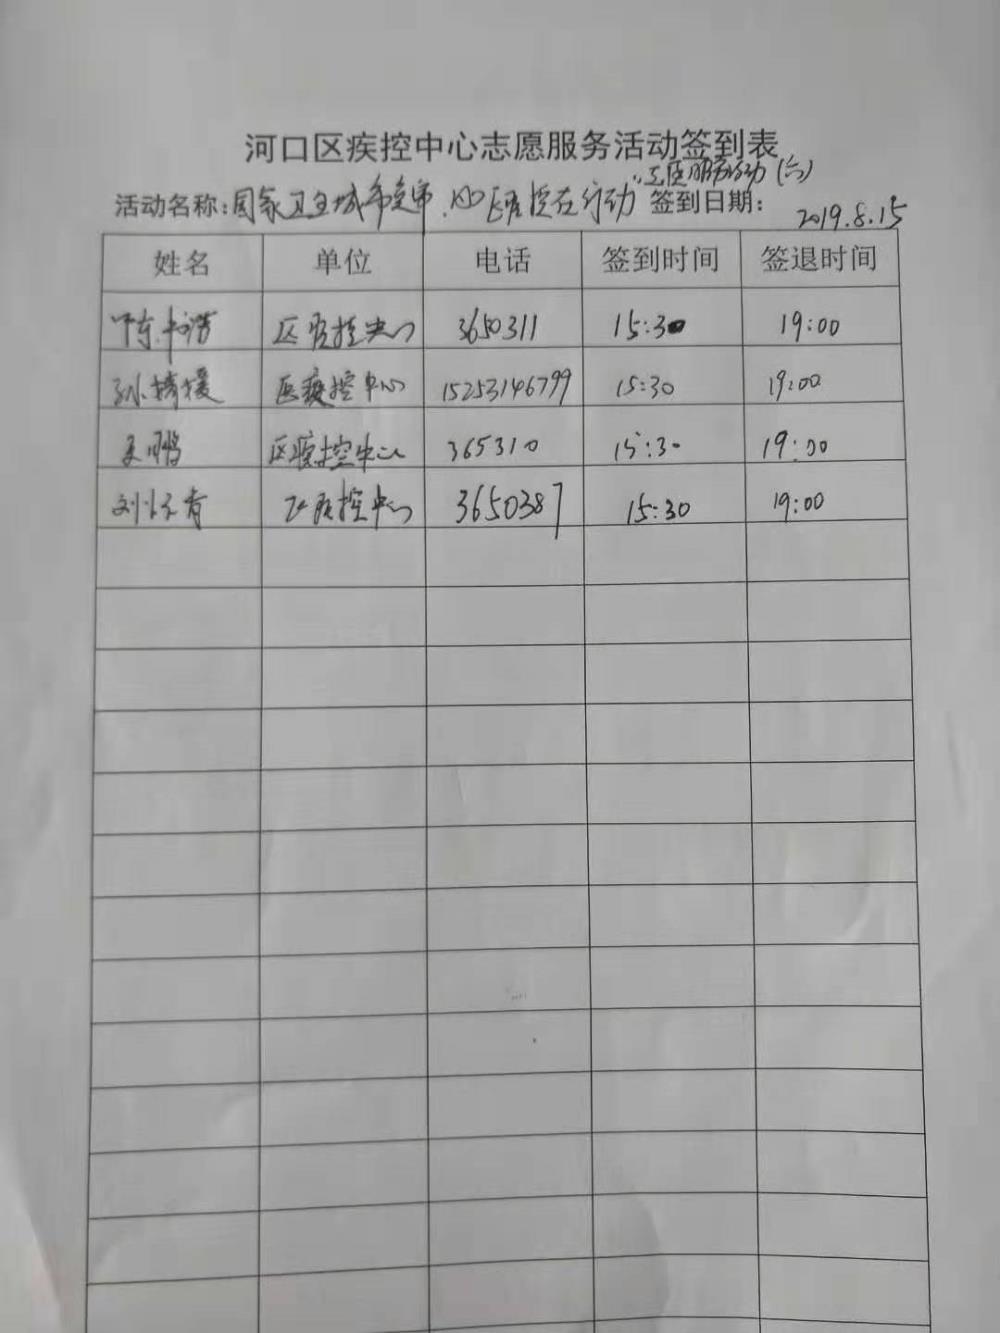 河口区疾控中心志愿服务活动签到表
志愿服务活动(六)
活动名称:国家卫生城市复审,"疾控在行动" 签到日期: 2019.8.15
姓名 单位 电话 签到时间 签退时间
区疾控中心 3650311 15:30 19:00
孙 区疾控中心 15253146799 15:30 19:00
鹏 区疾控中心 365310 15:30 19:00
刘 青 区疾控中心 3650387 15:30 19:00